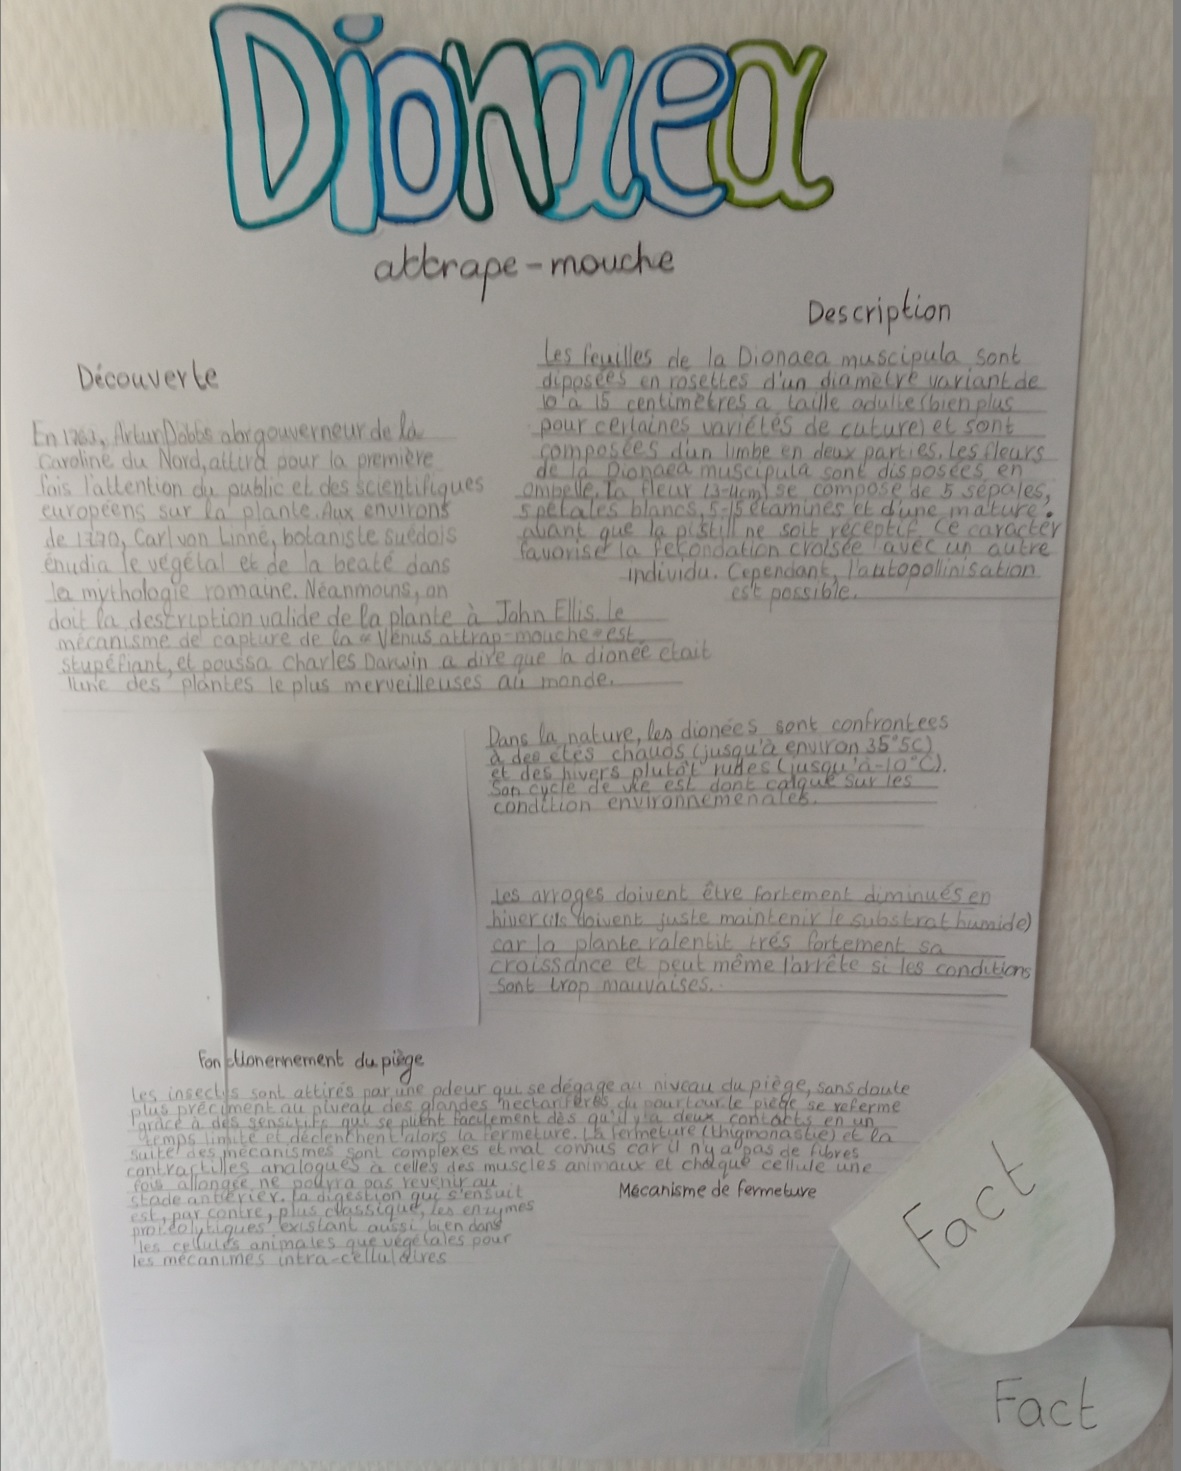 Dionaea
attrape-mouche
Découverte
En 1763, Artur Dobbs alor gouverneur de la
Caroline du Nord, attira pour la première
fois l'attention du public et des scientifiques
européens sur la plante. Aux environs
de 1770, Carl von Linné, botaniste suédois
énudia le végétal et de la beaté dans
la mythologie romaine. Néanmoins, on
doit la description valide de la plante à John Ellis. le
mécanisme de capture de la « Vénus attrap-mouche » est
stupéfiant, et poussa Charles Darwin a dire que la dionée était
l'une des plantes le plus merveilleuses au monde.
Description
Les feuilles de la Dionaea muscipula sont
diposées en rosettes d'un diamètre variant de
10 à 15 centimètres a taille adulte (bien plus
pour certaines variétés de cuture) et sont
composées d'un limbe en deux parties. Les fleurs
de la Dionaea muscipula sont disposées en
ombelle. la fleur (3-4cm) se compose de 5 sépales,
5 pétales blancs, 5-15 étamines et d'une mature.
avant que la pistill ne soit réceptif. Ce caractèr
favorise la fécondation croisée avec un autre
individu. Cependant, l'autopollinisation
est possible.
Dans la nature, les dionées sont confrontées
à des étés chauds (jusqu'à environ 35°5C)
et des hivers plutôt rudes (jusqu'à -10°C).
Son cycle de vie est dont calqué sur les
condition environnemenales.
Les arroges doivent être fortement diminués en
hiver (ils doivent juste maintenir le substrat humide)
car la plante ralentit trés fortement sa
croissance et peut même l'arrête si les conditions
sont trop mauvaises.
Fonctionernement du piège
Les insectes sont attirés par une odeur qui se dégage au niveau du piège, sans doute
plus préciment au plueau des glandes nectarifères du pourtour. le piège se referme
grâce à des sensitifs qui se plient facilement dès qu'il y a deux contacts en un
temps limité et déclenchent alors la fermeture. La fermeture (thigmonastie) et la
suite des mécanismes sont complexes et mal connus car il n'y a pas de fibres
contractilles analogues à celles des muscles animaux et chaque cellule une
fois allongée ne pourra pas revenir au
stade antérier. la digestion qui s'ensuit
est, par contre, plus classique, les enzymes
protéolytiques existant aussi bien dans
les cellules animales que végétales pour
les mécanimes intra-cellulaires
Mécanisme de fermeture
Fact
Fact